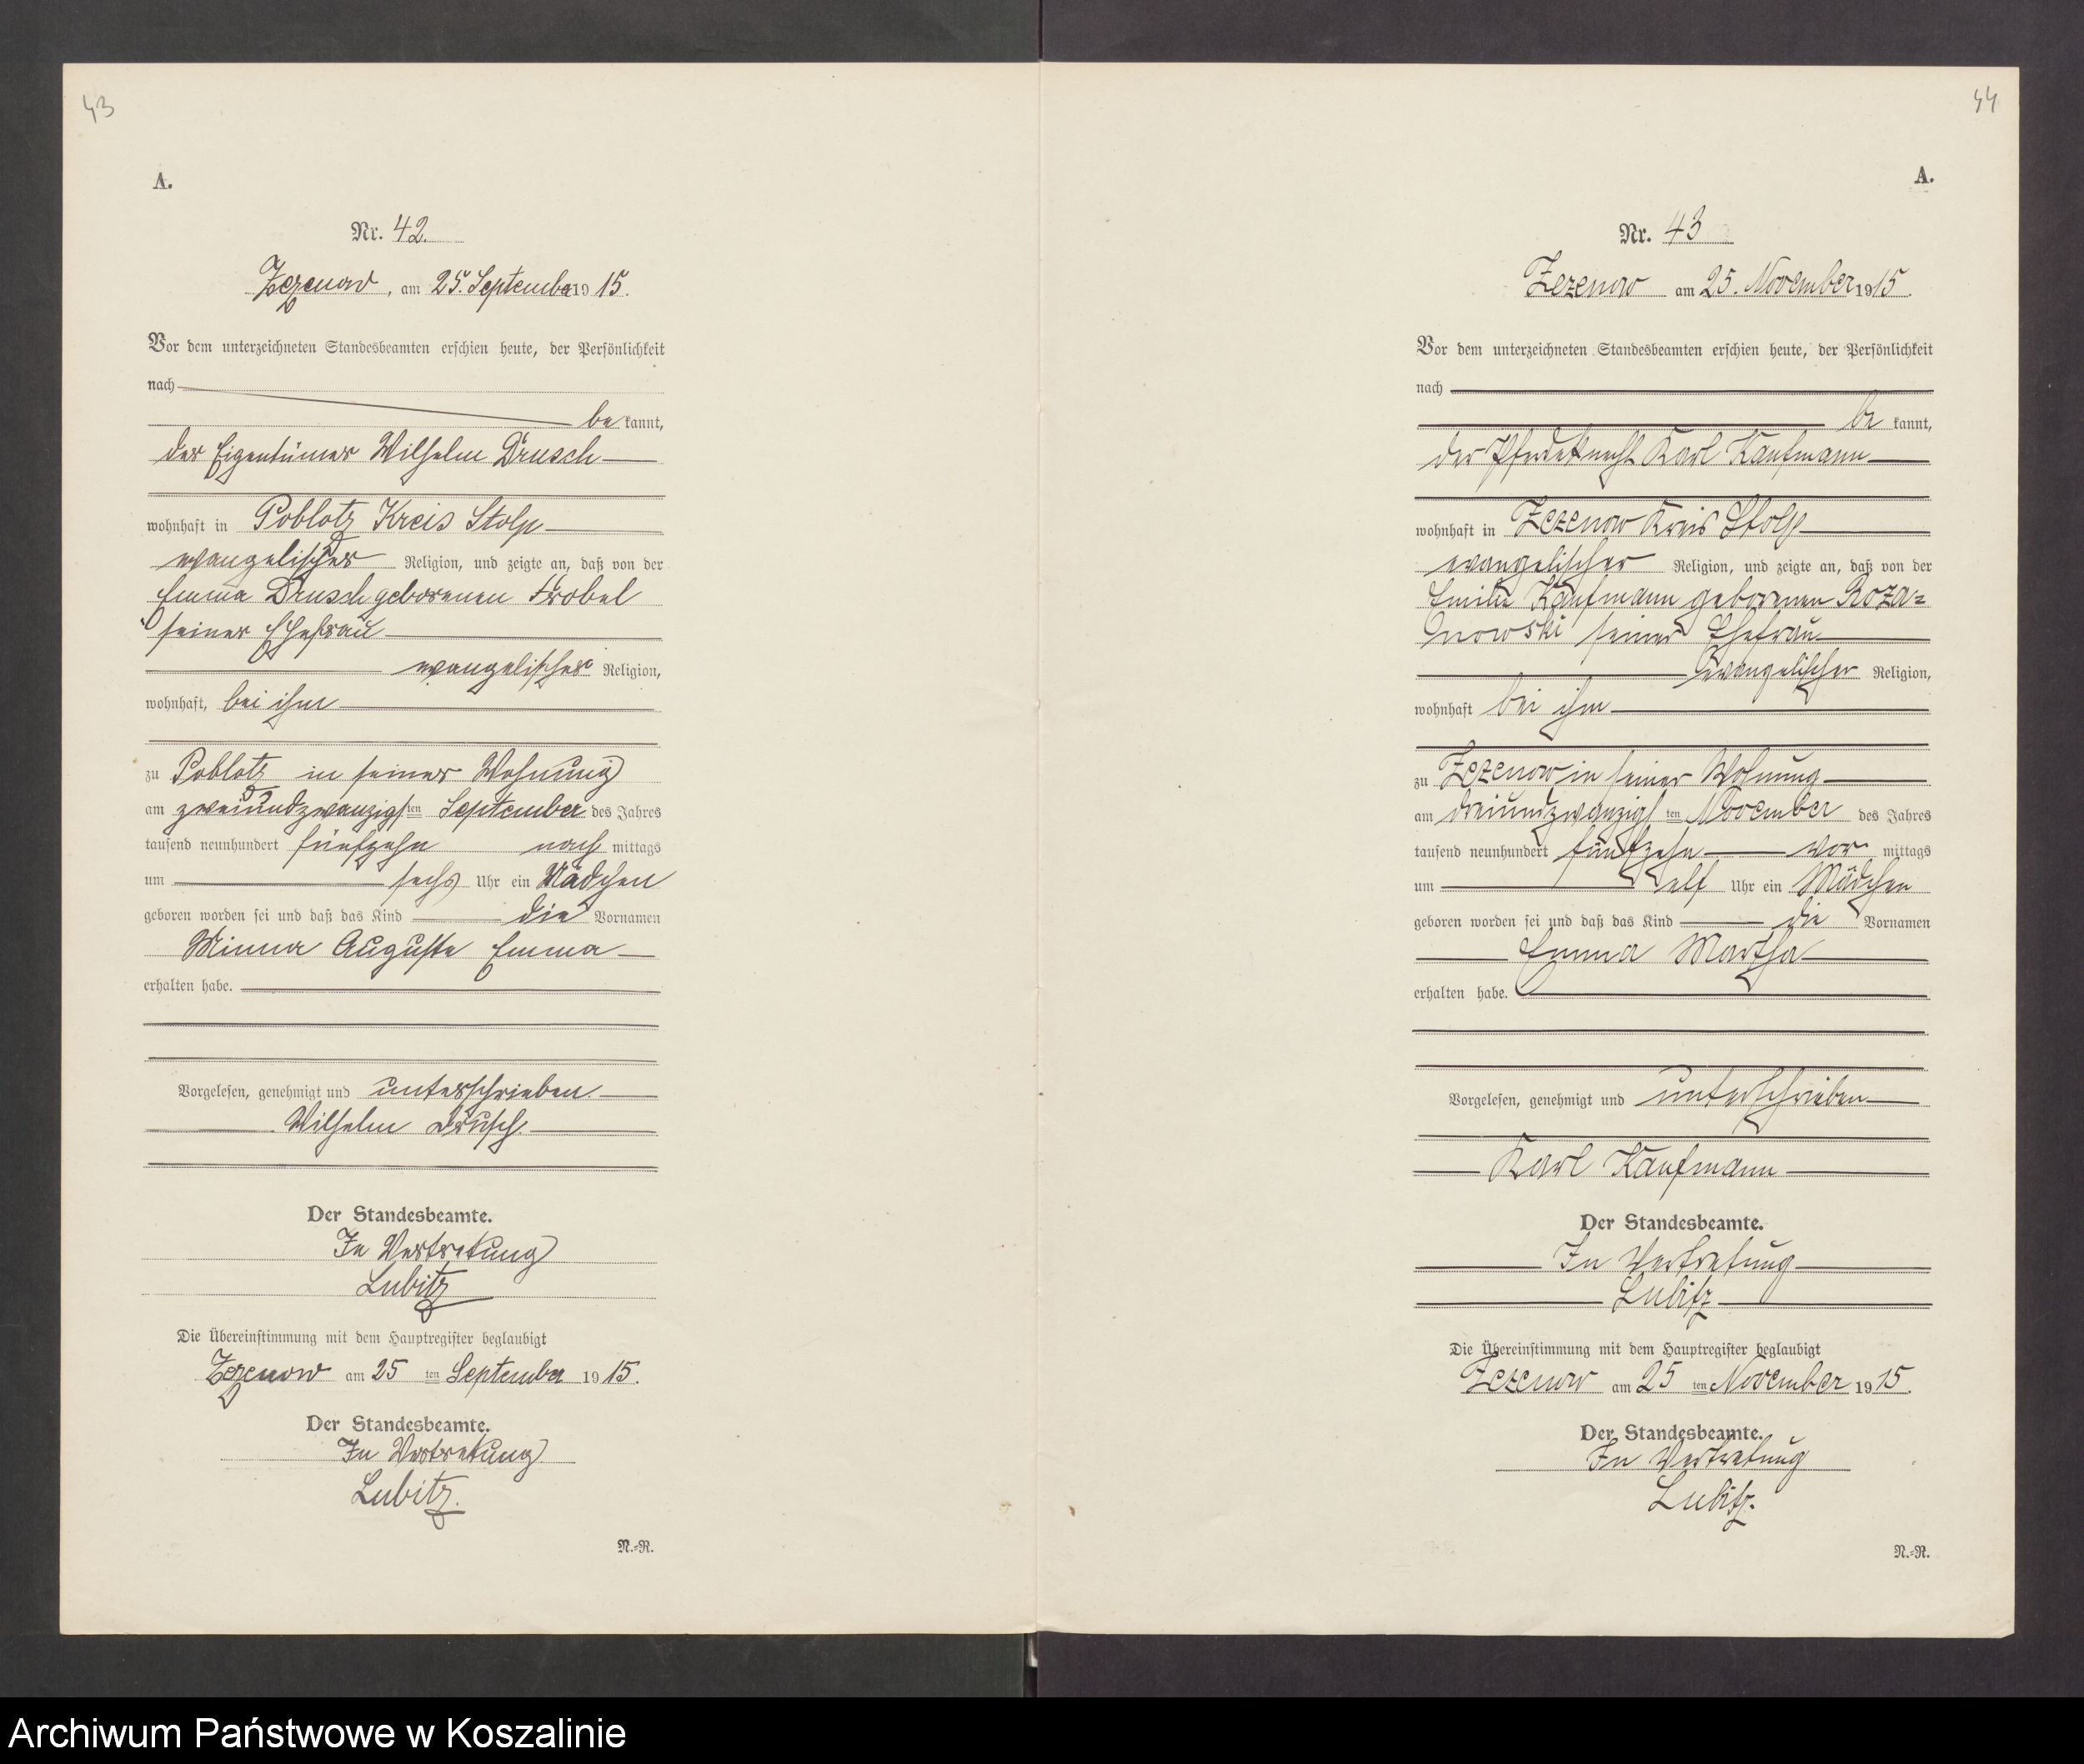 43
A.
Nr. 42.
Zezenow, am 25. September 1915.
Vor dem unterzeichneten Standesbeamten erschien heute, der Persönlichkeit
nach
be kannt,
der Eigentümer Wilhelm Drusch
wohnhaft in Poblotz Kreis Stolp
evangelischer Religion, und zeigte an, daß von der
Emma Drusch geborenen Frobel
seiner Ehefrau
evangelischer Religion,
wohnhaft, bei ihm
zu Poblotz in seiner Wohnung
am zweiundzwanzigsten September des Jahres
tausend neunhundert fünfzehn nach mittags
um sechs Uhr ein Mädchen
geboren worden sei und daß das Kind die Vornamen
Minna Auguste Emma
erhalten habe.
Vorgelesen, genehmigt und unterschrieben.
Wilhelm Drusch.
Der Standesbeamte.
In Vertretung
Lubitz
Die Übereinstimmung mit dem Hauptregister beglaubigt
Zezenow am 25 ten September 1915.
Der Standesbeamte.
In Vertretung
Lubitz.
N.-R.
44
A.
Nr. 43
Zezenow am 25. November 1915.
Vor dem unterzeichneten Standesbeamten erschien heute, der Persönlichkeit
nach
be kannt,
der Pferdeknecht Karl Kaufmann
wohnhaft in Zezenow Kreis Stolp
evangelischer Religion, und zeigte an, daß von der
Emilie Kaufmann geborenen Roza-
nowski seiner Ehefrau
evangelischer Religion,
wohnhaft bei ihm
zu Zezenow in seiner Wohnung
am dreiundzwanzigsten November des Jahres
tausend neunhundert fünfzehn vor mittags
um elf Uhr ein Mädchen
geboren worden sei und daß das Kind die Vornamen
Emma Martha
erhalten habe.
Vorgelesen, genehmigt und unterschrieben
Karl Kaufmann
Der Standesbeamte.
In Vertretung
Lubitz
Die Übereinstimmung mit dem Hauptregister beglaubigt
Zezenow am 25 ten November 1915.
Der Standesbeamte.
In Vertretung
Lubitz.
N.-R.
Archiwum Państwowe w Koszalinie